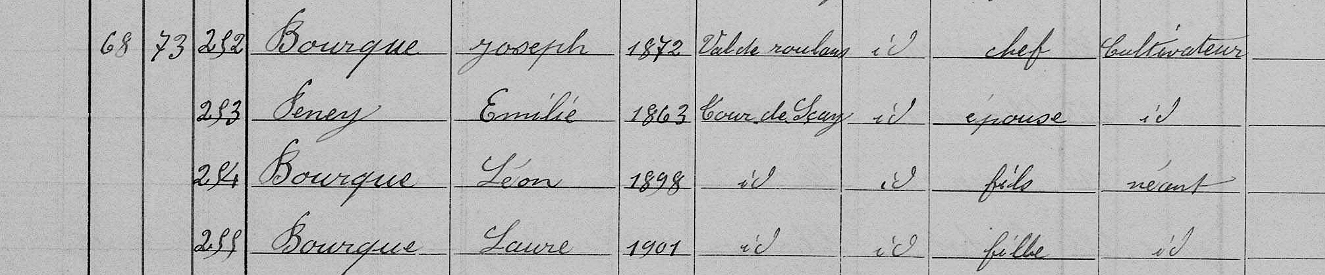 68 73 252 Bourque Joseph 1872 Val de roulans id chef Cultivateur
253 Peney Emilie 1863 Cour de Scay id épouse id
254 Bourque Léon 1898 id id fils néant
255 Bourque Laure 1901 id id fille id